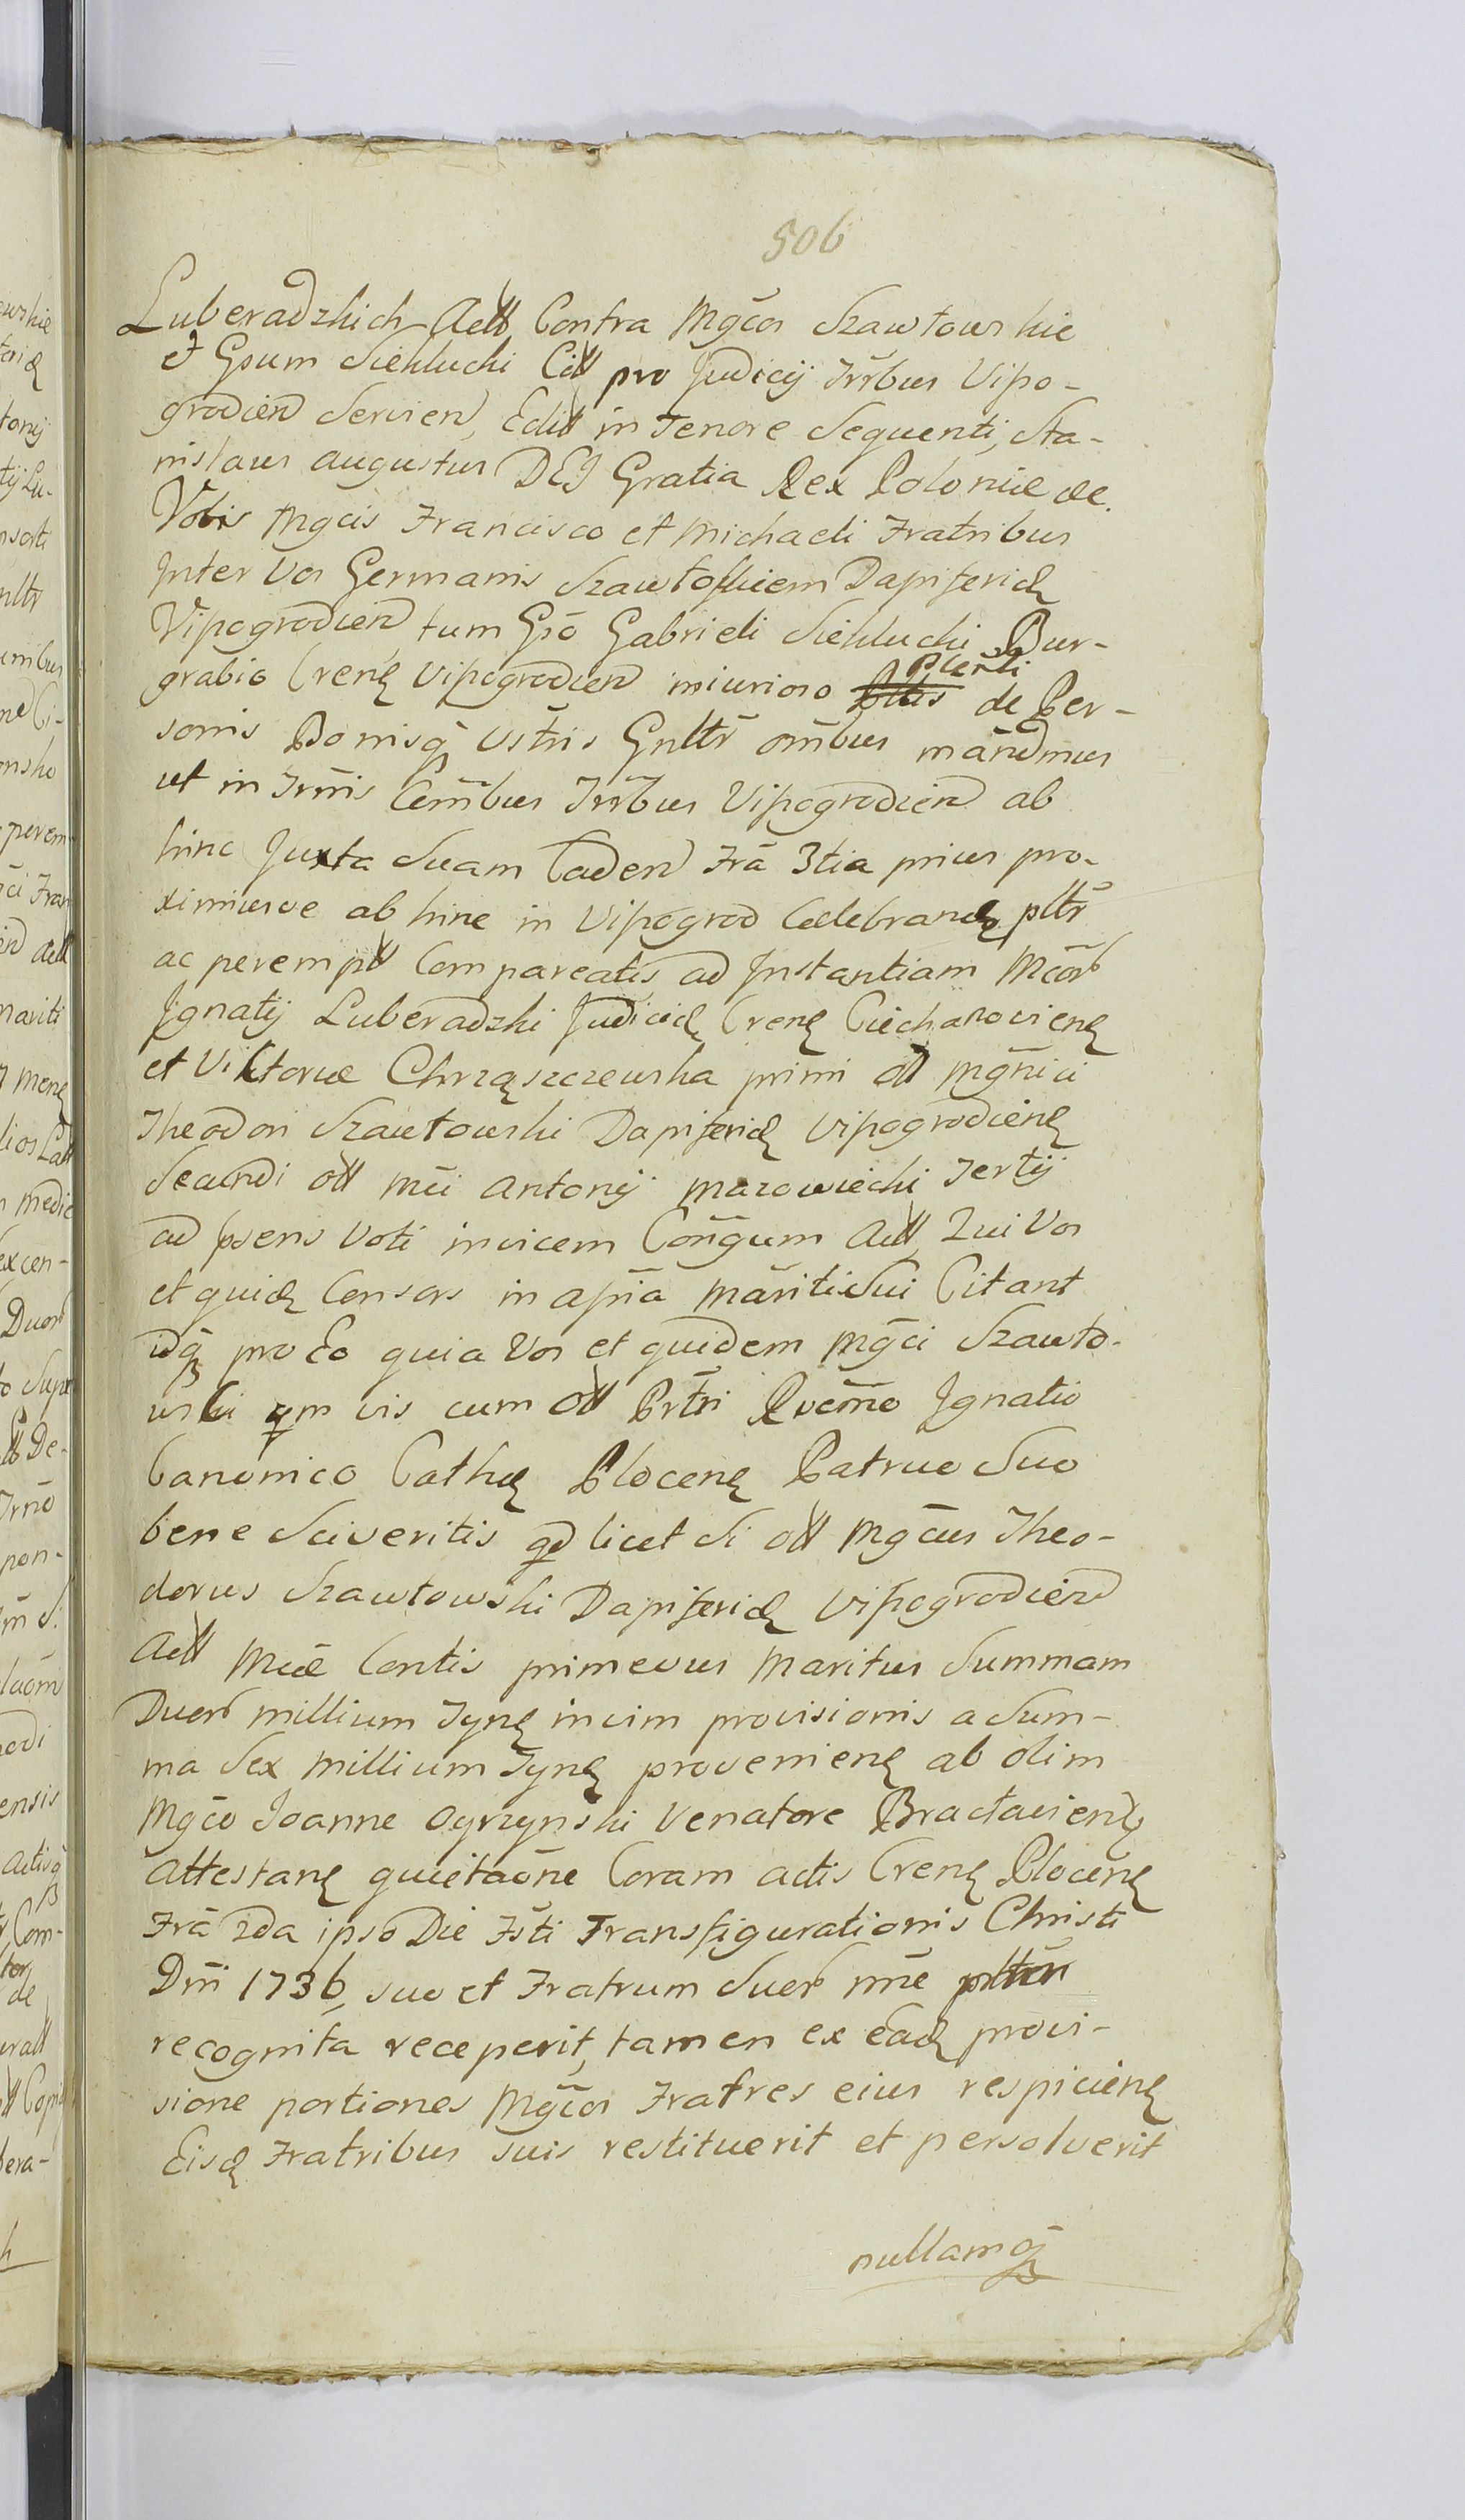 506
Luberadzkich Actt Contra Mgcos Szawłowskie
et Gsum Siekłucki Citt pro Judicij Trrbus Vipo-
grodien Servien, Editt in Tenore Sequenti, Sta-
nislaus Augustus DEI Gratia Rex Poloniæ &c.
Vobis Mgcis Francisco et Michaeli Fratribus
Inter Vos Germanis Szawłoskiem Dapiferid
Vipogrodien tum Gso Gabrieli Siekłucki Bur-
grabio Crens Vipogrodien iniurioso Plenti de Per-
sonis Bonisq vstris Gnltr ombus mandmus
ut in Trmis Cembus Trrbus Vipogrodien ab
hinc Juxta Suam Caden Fra 3tia prius pro-
ximiusve ab hinc in Vipogrod Celebrand pltr
ac peremptt Compareatis ad Instantiam Mcorb
Ignatij Luberadzki Judicid Crens Ciechanoviens
et Viktoriæ Chrząszczewska primi ott Mgnici
Theodori Szawłowski Dapiferid Vipogrodiens
Secundi ott Mci Antonij Mazowiecki Tertij
ad psens Voti invicem Congum Actt, Qui Vos
et quid Consors in assia Mariti Sui Citant
idq pro Eo quia Vos et quidem Mgci Szawło-
wski qm vis cum ott Prtri Rvemo Ignatio
Canonico Cathe Plocens Patruo Suo
bene Sciveritis qd licet Si ott Mgcus Theo-
dorus Szawłowski Dapiferid Vipogrodien
Actt Mcæ Contis primevus Maritus Summam
Duorb millium Tyns invim provisionis a Sum-
ma Sex Millium Tyns proveniens ab olim
Mgco Joanne Ogrzynski Venatore Bracłaviens
Attestans quietaone Coram actis Crens Plocens
Fra 2da ipso Die Fsti Transfigurationis Christi
Dni 1736, suo et Fratrum Suorb nne
recognita receperit, tamen ex Ead provi-
sione portiones Mgcos Fratres eius respiciens
Eisd Fratribus suis restituerit et persolverit
nullamq